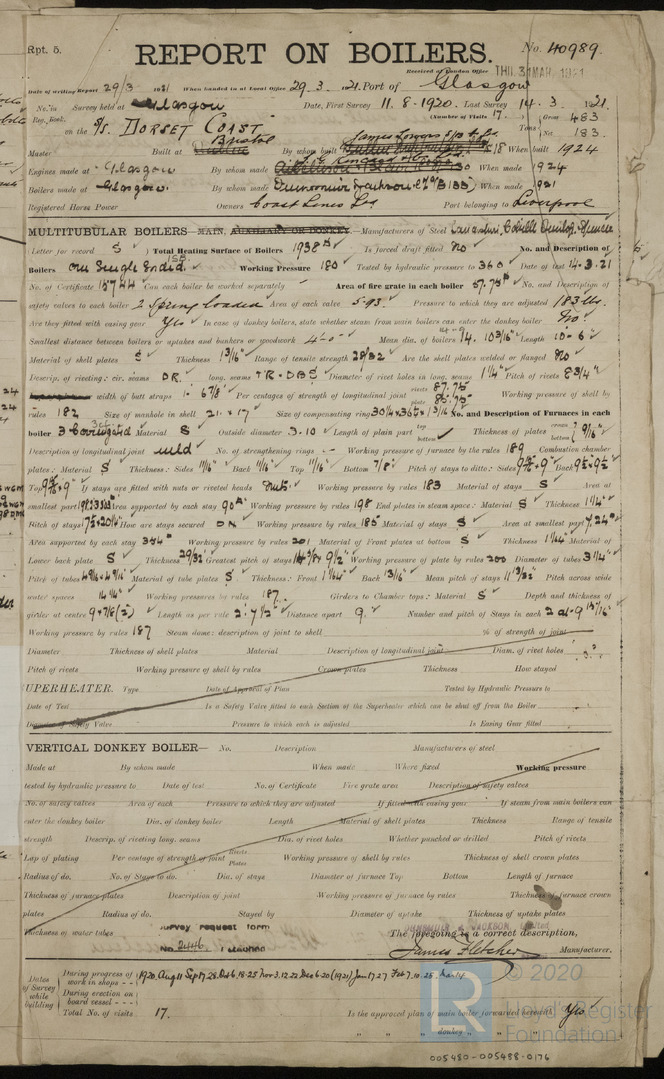 Rpt. 5.
REPORT ON BOILERS.
No. 40989.
Received at London Office THU. 31 MAR. 1921
Date of writing Report 29/3 1921 When handed in at Local Office 29.3.1921. Port of Glasgow
No. in Survey held at Glasgow Date, First Survey 11.8.1920. Last Survey 14.3.1921.
Reg. Book. (Number of Visits 17) Gross 483
on the S/S DORSET COAST Tons
Net 183.
Master Built at Bristol By whom built When built 1924
Engines made at Glasgow By whom made When made 1924
Boilers made at Glasgow. By whom made When made 1921
Registered Horse Power Owners Coast Lines Ld Port belonging to Liverpool
MULTITUBULAR BOILERS—MAIN, AUXILIARY OR DONKEY.—Manufacturers of Steel
Letter for record S Total Heating Surface of Boilers 1938 Is forced draft fitted No No. and Description of
Boilers One Single Ended. Working Pressure 180 Tested by hydraulic pressure to 360 Date of test 14.3.21
No. of Certificate 15744 Can each boiler be worked separately Area of fire grate in each boiler 57.75 No. and Description of
safety valves to each boiler 2 Spring loaded Area of each valve 5.93. Pressure to which they are adjusted 183 lbs.
Are they fitted with easing gear Yes In case of donkey boilers, state whether steam from main boilers can enter the donkey boiler No.
Smallest distance between boilers or uptakes and bunkers or woodwork Mean dia. of boilers Length 10'-6"
Material of shell plates S Thickness 1 3/16" Range of tensile strength 28/32 Are the shell plates welded or flanged No
Descrip. of riveting: cir. seams DR. long. seams TR.DBS Diameter of rivet holes in long. seams 1 1/4" Pitch of rivets 8 3/4"
width of butt straps 1'-6 7/8" Per centages of strength of longitudinal joint rivets 87.75 plate 85.75 Working pressure of shell by
rules 182 Size of manhole in shell 21 x 17 Size of compensating ring No. and Description of Furnaces in each
boiler 3 Corrugated Material S Outside diameter 3-10 Length of plain part top bottom Thickness of plates crown bottom 9/16"
Description of longitudinal joint weld No. of strengthening rings - Working pressure of furnace by the rules 189 Combustion chamber
plates: Material S Thickness: Sides 11/16" Back 11/16" Top 11/16" Bottom 7/8" Pitch of stays to ditto: Sides Back 9 1/2 x 9 1/2
Top If stays are fitted with nuts or riveted heads Nuts. Working pressure by rules 183 Material of stays S Area at
smallest part Area supported by each stay 90 Working pressure by rules 198 End plates in steam space: Material S Thickness 1 1/4"
Pitch of stays How are stays secured DN Working pressure by rules 185 Material of stays S Area at smallest part 7.24
Area supported by each stay 354 Working pressure by rules 201 Material of Front plates at bottom S Thickness Material of
Lower back plate S Thickness 29/32 Greatest pitch of stays Working pressure of plate by rules 200 Diameter of tubes 3 1/4"
Pitch of tubes Material of tube plates S Thickness: Front Back 13/16" Mean pitch of stays Pitch across wide
water spaces 14 1/4" Working pressures by rules 187. Girders to Chamber tops: Material S Depth and thickness of
girder at centre 9 x 7/8 (2) Length as per rule 2'-7 1/2" Distance apart 9. Number and pitch of Stays in each 2 at 9
Working pressure by rules 187 Steam dome: description of joint to shell % of strength of joint
Diameter Thickness of shell plates Material Description of longitudinal joint Diam. of rivet holes
Pitch of rivets Working pressure of shell by rules Crown plates Thickness How stayed
UPERHEATER. Type Date of Approval of Plan Tested by Hydraulic Pressure to
Date of Test Is a Safety Valve fitted to each Section of the Superheater which can be shut off from the Boiler
Diameter of Safety Valve Pressure to which each is adjusted Is Easing Gear fitted
VERTICAL DONKEY BOILER— No. Description Manufacturers of steel
Made at By whom made When made Where fixed Working pressure
tested by hydraulic pressure to Date of test No. of Certificate Fire grate area Description of safety valves
No. of safety valves Area of each Pressure to which they are adjusted If fitted with easing gear If steam from main boilers can
enter the donkey boiler Dia. of donkey boiler Length Material of shell plates Thickness Range of tensile
strength Descrip. of riveting long. seams Dia. of rivet holes Whether punched or drilled Pitch of rivets
Lap of plating Per centage of strength of joint Rivets Plates Working pressure of shell by rules Thickness of shell crown plates
Radius of do. No. of Stays to do. Dia. of stays Diameter of furnace Top Bottom Length of furnace
Thickness of furnace plates Description of joint Working pressure of furnace by rules Thickness of furnace crown
plates Radius of do. Stayed by Diameter of uptake Thickness of uptake plates
Thickness of water tubes
Survey request form
No. 2446
The foregoing is a correct description,
James Fletcher Manufacturer.
Dates of Survey while building
During progress of work in shops - - 1920. Aug 11 Sep 17. 28. Oct 6. 18. 25 Nov 3. 12. 22 Dec 6. 20 (1921) Jan 17. 27 Feb 7. 10. 25. Mar 14
During erection on board vessel - - -
Total No. of visits 17. Is the approved plan of main boiler forwarded herewith Yes
" " " donkey " " "
© 2020
LR
Lloyd's Register
Foundation
005480-005488-0176